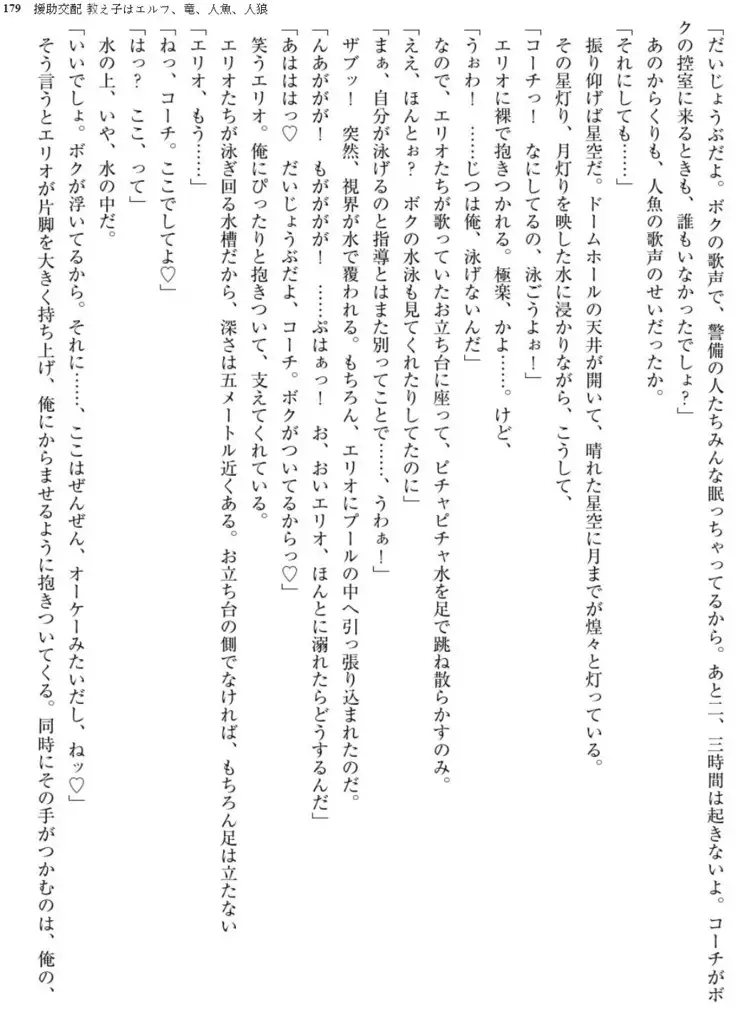 179 援助交配 教え子はエルフ、竜、人魚、人狼
「だいじょうぶだよ。ボクの歌声で、警備の人たちみんな眠っちゃってるから。あと二、三時間は起きないよ。コーチがボ
クの控室に来るときも、誰もいなかったでしょ？」
あのからくりも、人魚の歌声のせいだったか。
「それにしても……」
振り仰げば星空だ。ドームホールの天井が開いて、晴れた星空に月までが煌々と灯っている。
その星灯り、月灯りを映した水に浸かりながら、こうして、
「コーチっ！　なにしてるの、泳ごうよぉ！」
エリオに裸で抱きつかれる。極楽、かよ……。けど、
「うぉわ！　……じつは俺、泳げないんだ」
なので、エリオたちが歌っていたお立ち台に座って、ピチャピチャ水を足で跳ね散らかすのみ。
「ええ、ほんとぉ？　ボクの水泳も見てくれたりしてたのに」
「まぁ、自分が泳げるのと指導とはまた別ってことで……、うわぁ！」
ザブッ！　突然、視界が水で覆われる。もちろん、エリオにプールの中へ引っ張り込まれたのだ。
「んあががが！　もがががが！　……ぷはぁっ！　お、おいエリオ、ほんとに溺れたらどうするんだ」
「あはははっ♡　だいじょうぶだよ、コーチ。ボクがついてるからっ♡」
笑うエリオ。俺にぴったりと抱きついて、支えてくれている。
エリオたちが泳ぎ回る水槽だから、深さは五メートル近くある。お立ち台の側でなければ、もちろん足は立たない
「エリオ、もう……」
「ねっ、コーチ。ここでしてよ♡」
「はっ？　ここ、って」
水の上、いや、水の中だ。
「いいでしょ。ボクが浮いてるから。それに……、ここはぜんぜん、オーケーみたいだし、ねッ♡」
そう言うとエリオが片脚を大きく持ち上げ、俺にからませるように抱きついてくる。同時にその手がつかむのは、俺の、